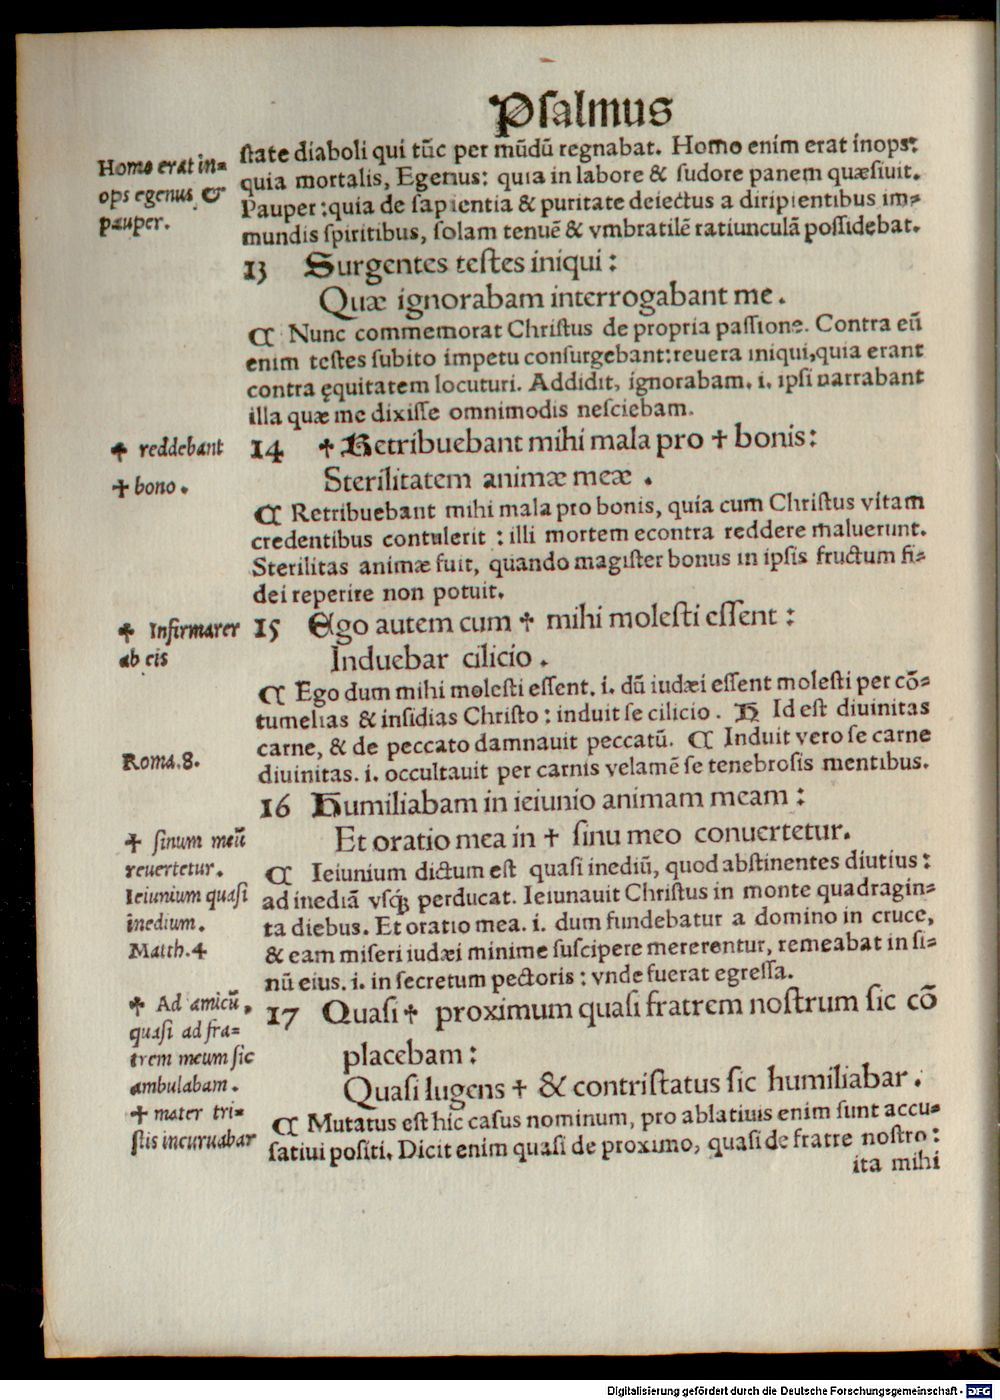 Psalmus
Homo erat in=
ops egenus &
pauper.
ſtate diaboli qui tūc per mūdū regnabat. Homo enim erat inops:
quia mortalis, Egenus: quia in labore & ſudore panem quæſiuit.
Pauper: quia de ſapientia & puritate deiectus a diripientibus im=
mundis ſpiritibus, ſolam tenuē & vmbratilē ratiunculā poſſidębat.
13 Surgentes teſtes iniqui:
Quæ ignorabam interrogabant me.
¶ Nunc commemorat Chriſtus de propria paſſione. Contra eū
enim teſtes ſubito impetu conſurgebant: reuera iniqui, quia erant
contra ęquitatem locuturi. Addidit, ignorabam. i. ipſi narrabant
illa quæ me dixiſſe omnimodis neſciebam.
✝ reddebant
✝ bono.
14 ✝ Retribuebant mihi mala pro ✝ bonis:
Sterilitatem animæ meæ.
¶ Retribuebant mihi mala pro bonis, quia cum Chriſtus vitam
credentibus contulerit: illi mortem econtra reddere maluerunt.
Sterilitas animæ fuit, quando magiſter bonus in ipſis fructum fi=
dei reperire non potuit.
✝ Infirmarer
ab eis
15 Ego autem cum ✝ mihi moleſti eſſent:
Induebar cilicio.
¶ Ego dum mihi moleſti eſſent. i. dū iudæi eſſent moleſti per cō=
tumelias & inſidias Chriſto: induit ſe cilicio. H Id eſt diuinitas
carne, & de peccato damnauit peccatū. ¶ Induit vero ſe carne
diuinitas. i. occultauit per carnis velamē ſe tenebroſis mentibus.
Roma.8.
16 Humiliabam in ieiunio animam meam:
Et oratio mea in ✝ ſinu meo conuertetur.
✝ ſinum meū
reuertetur.
Ieiunium quaſi
inedium.
Matth.4
¶ Ieiunium dictum eſt quaſi inediū, quod abſtinentes diutius:
ad inediā vſqꝫ perducat. Ieiunauit Chriſtus in monte quadragin=
ta diebus. Et oratio mea. i. dum fundebatur a domino in cruce,
& eam miſeri iudæi minime ſuſcipere mererentur, remeabat in ſi=
nū eius. i. in ſecretum pectoris: vnde fuerat egreſſa.
✝ Ad amicū,
quaſi ad fra=
trem meum ſic
ambulabam.
✝ mater tri=
ſtis incuruabar
17 Quaſi ✝ proximum quaſi fratrem noſtrum ſic cō
placebam:
Quaſi lugens ✝ & contriſtatus ſic humiliabar.
¶ Mutatus eſt hic caſus nominum, pro ablatiuis enim ſunt accu=
ſatiui poſiti. Dicit enim quaſi de proximo, quaſi de fratre noſtro:
ita mihi
Digitalisierung gefördert durch die Deutsche Forschungsgemeinschaft - DFG